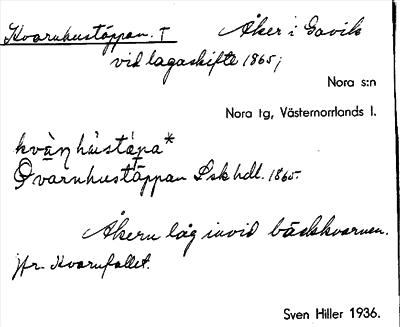 Kvarnhustäppan. T Åker i Gavik
vid lagaskifte 1865;
Nora s:n
Nora tg, Västernorrlands l.
kvὰη hùstápa*
Qvarnhustäppan Lskhdl. 1865.
Åkern låg invid bäckkvarnen.
Jfr. Kvarnfallet.
Sven Hiller 1936.